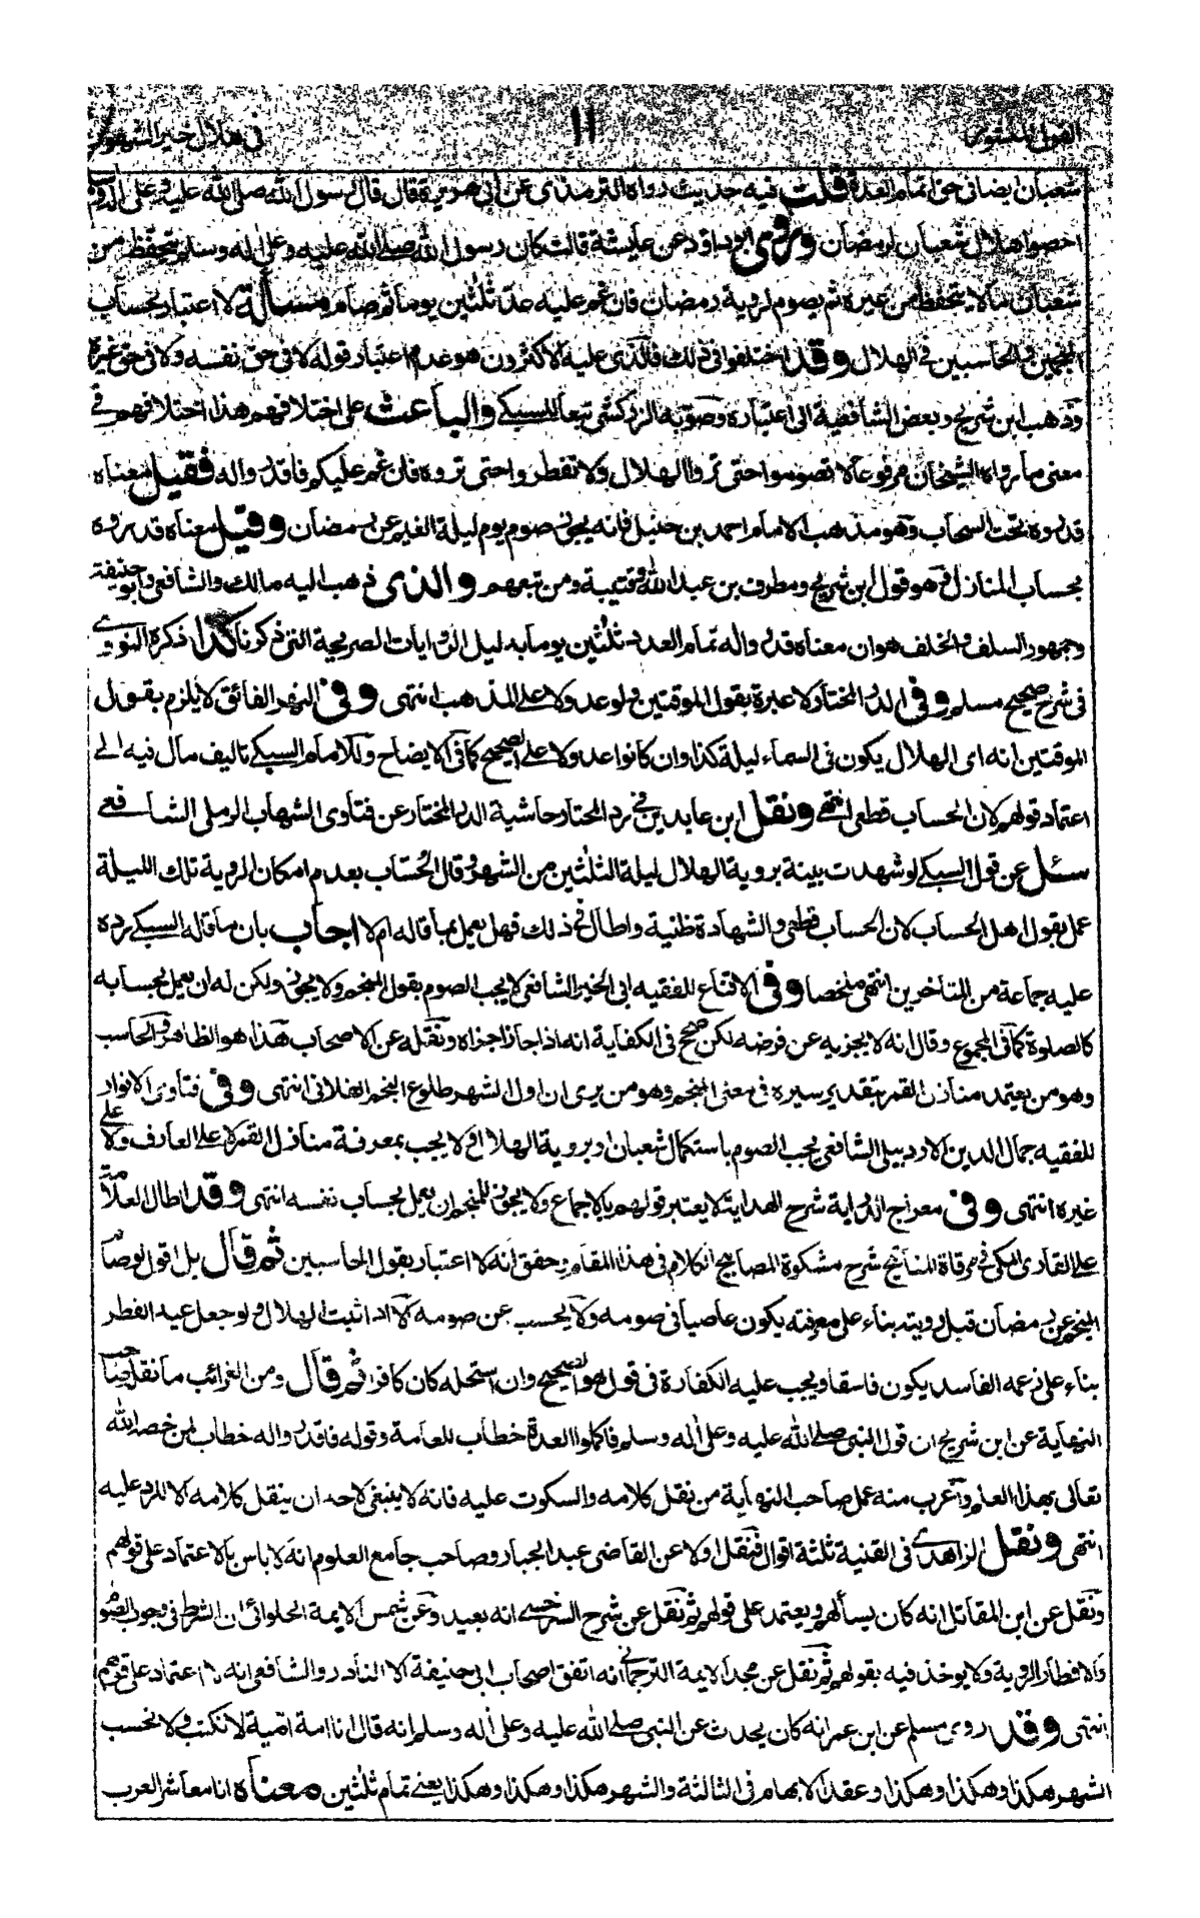 القول المنشور ١١ في هلال خير الشهور
شعبان ايضا في حق اتمام العدة قلت فيه حديث رواه الترمذي عن ابي هريرة قال قال رسول الله صلى الله عليه وعلى اله وسلم
احصوا هلال شعبان لرمضان وروى ابو داود عن عايشة قالت كان رسول الله صلى الله عليه وعلى اله وسلم يتحفظ من
شعبان ما لا يتحفظ من غيره ثم يصوم لروية رمضان فان غم عليه عد ثلثين يوما ثم صام مسألة لا اعتبار بحساب
المنجمين والحاسبين في الهلال وقد اختلفوا في ذلك فالذي عليه الاكثرون هو عدم اعتبار قوله لا في حق نفسه ولا في حق غيره
وذهب ابن شريح وبعض الشافعية الى اعتباره وصوبه الزركشي تبعا للسبكي والباعث على اختلافهم هذا اختلافهم في
معنى ما رواه الشيخان مرفوعا لا تصوموا حتى تروا الهلال ولا تفطروا حتى تروه فان غم عليكم فاقدروا له فقيل معناه
قدروه تحت السحاب وهو مذهب الامام احمد بن حنبل فانه يجوز صوم يوم ليلة الغيم عن رمضان وقيل معناه قدروه
بحساب المنازل وهو قول ابن شريح ومطرف بن عبد الله وقتيبة ومن تبعهم والذي ذهب اليه مالك والشافعي وابو حنيفة
وجمهور السلف والخلف هو ان معناه قدروا له تمام العدد ثلثين يوما بدليل الروايات الصريحة التي ذكرنا كذا ذكره النووي
في شرح صحيح مسلم وفي الدر المختار ولا عبرة بقول الموقتين ولو عدولا على المذهب انتهى وفي النهر الفائق لا يلزم بقول
الموقتين انه اى الهلال يكون في السماء ليلة كذا وان كانوا عدولا على الصحيح كما في الايضاح وللامام السبكي تاليف مال فيه الى
اعتماد قولهم لان الحساب قطعي انتهى ونقل ابن عابدين في رد المحتار حاشية الدر المختار عن فتاوى الشهاب الرملي الشافعي
سئل عن قول السبكي لو شهدت بينة بروية الهلال ليلة الثلثين من الشهر وقال الحساب بعدم امكان الروية تلك الليلة
عمل بقول اهل الحساب لان الحساب قطعي والشهادة ظنية واطال في ذلك فهل يعمل بما قاله ام لا اجاب بان ما قاله السبكي رده
عليه جماعة من المتاخرين انتهى ملخصا وفي الاقناع للفقيه ابي الخير الشافعي لا يجب الصوم بقول المنجم ولا يجوز ولكن له ان يعمل بحسابه
كالصلوة كما في المجموع وقال انه لا يجزيه عن فرضه لكن صحح في الكفاية انه اذا جاز اجزاه ونقله عن الاصحاب هذا هو الظاهر والحاسب
وهو من يعتمد منازل القمر بتقدير سيره في معنى المنجم وهو من يرى ان اول الشهر طلوع النجم الفلاني انتهى وفي فتاوى الانوار
للفقيه جمال الدين الاردبيلي الشافعي يجب الصوم باستكمال شعبان او بروية الهلال ولا يجب بمعرفة منازل القمر لا على العارف ولا على
غيره انتهى وفي معراج الدراية شرح الهداية لا يعتبر قولهم بالاجماع ولا يجوز للمنجم ان يعمل بحساب نفسه انتهى وقد اطال العلامة
علي القاري المكي في مرقاة المفاتيح شرح مشكوة المصابيح الكلام في هذا المقام وحقق انه لا اعتبار بقول الحاسبين ثم قال بل اقول لو صام
المنجم عن رمضان قبل رويته بناء على معرفته يكون عاصيا في صومه ولا يحسب عن صومه الا اذا ثبت الهلال ولو جعل عيد الفطر
بناء على زعمه الفاسد يكون فاسقا ويجب عليه الكفارة في قول وهو الصحيح وان استحله كان كافرا ثم قال ومن الغرائب ما نقل صاحب
النهاية عن ابن شريح ان قول النبي صلى الله عليه وعلى اله وسلم فاكملوا العدة خطاب للعامة وقوله فاقدروا له خطاب لمن خصه الله
تعالى بهذا العلم واغرب منه عمل صاحب النهاية من نقل كلامه والسكوت عليه فانه لا ينبغي لاحد ان ينقل كلامه الا للرد عليه
انتهى ونقل الزاهدي في القنية ثلثة اقوال فنقل اولا عن القاضي عبد الجبار وصاحب جامع العلوم انه لا باس بالاعتماد على قولهم
ونقل عن ابن المقاتل انه كان يسألهم ويعتمد على قولهم ثم نقل عن شرح السرخسي انه بعيد وعن شمس الايمة الحلوائي ان الشرط في وجوب الصوم
والافطار الروية ولا يوخذ فيه بقولهم ثم نقل عن مجد الايمة الترجماني انه اتفق اصحاب ابي حنيفة الا النادر والشافعي انه لا اعتماد على قولهم
انتهى وقد روى مسلم عن ابن عمر انه كان يحدث عن النبي صلى الله عليه وعلى اله وسلم انه قال انا امة امية لا نكتب ولا نحسب
الشهر هكذا وهكذا وهكذا وعقد الابهام في الثالثة والشهر هكذا وهكذا وهكذا يعني تمام ثلثين معناه انا معاشر العرب